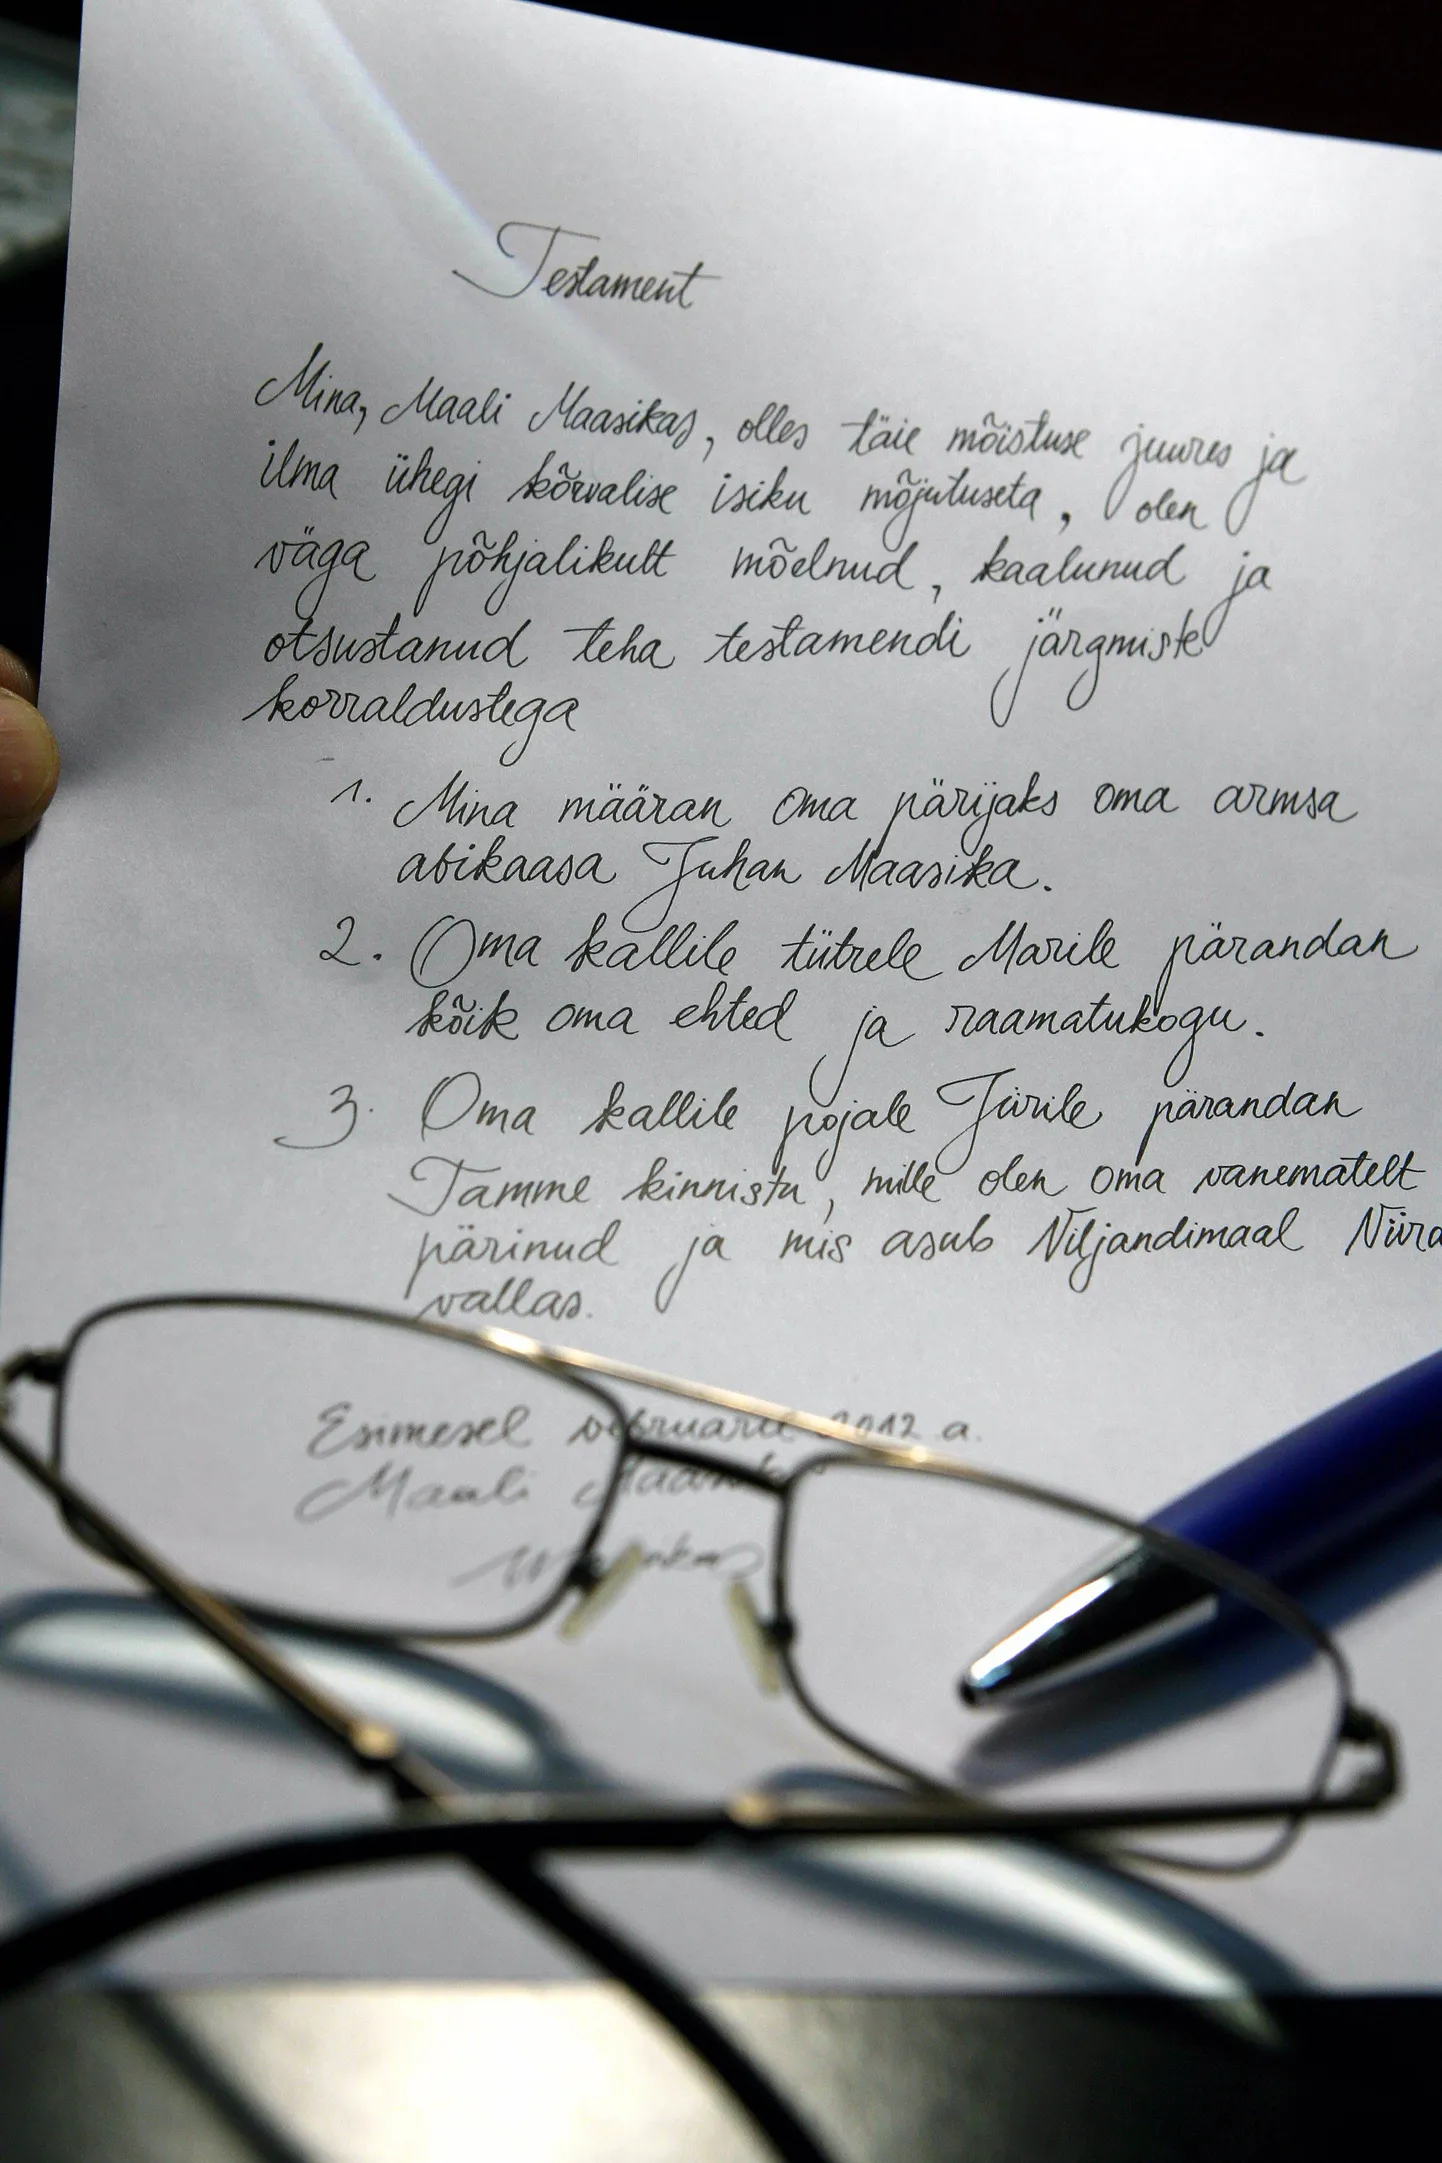 Testament
Mina, Maali Maasikas, olles täie mõistuse juures ja
ilma ühegi kõrvalise isiku mõjutuseta, olen
väga põhjalikult mõelnud, kaalunud ja
otsustanud teha testamendi järgmiste
korraldustega
1. Mina määran oma pärijaks oma armsa
abikaasa Juhan Maasika.
2. Oma kallile tütrele Marile pärandan
kõik oma ehted ja raamatukogu.
3. Oma kallile pojale Jürile pärandan
Tamme kinnistu, mille olen oma vanematelt
pärinud ja mis asub Viljandimaal
vallas.
Esimesel veebruaril 2012 a.
Maali Maasikas